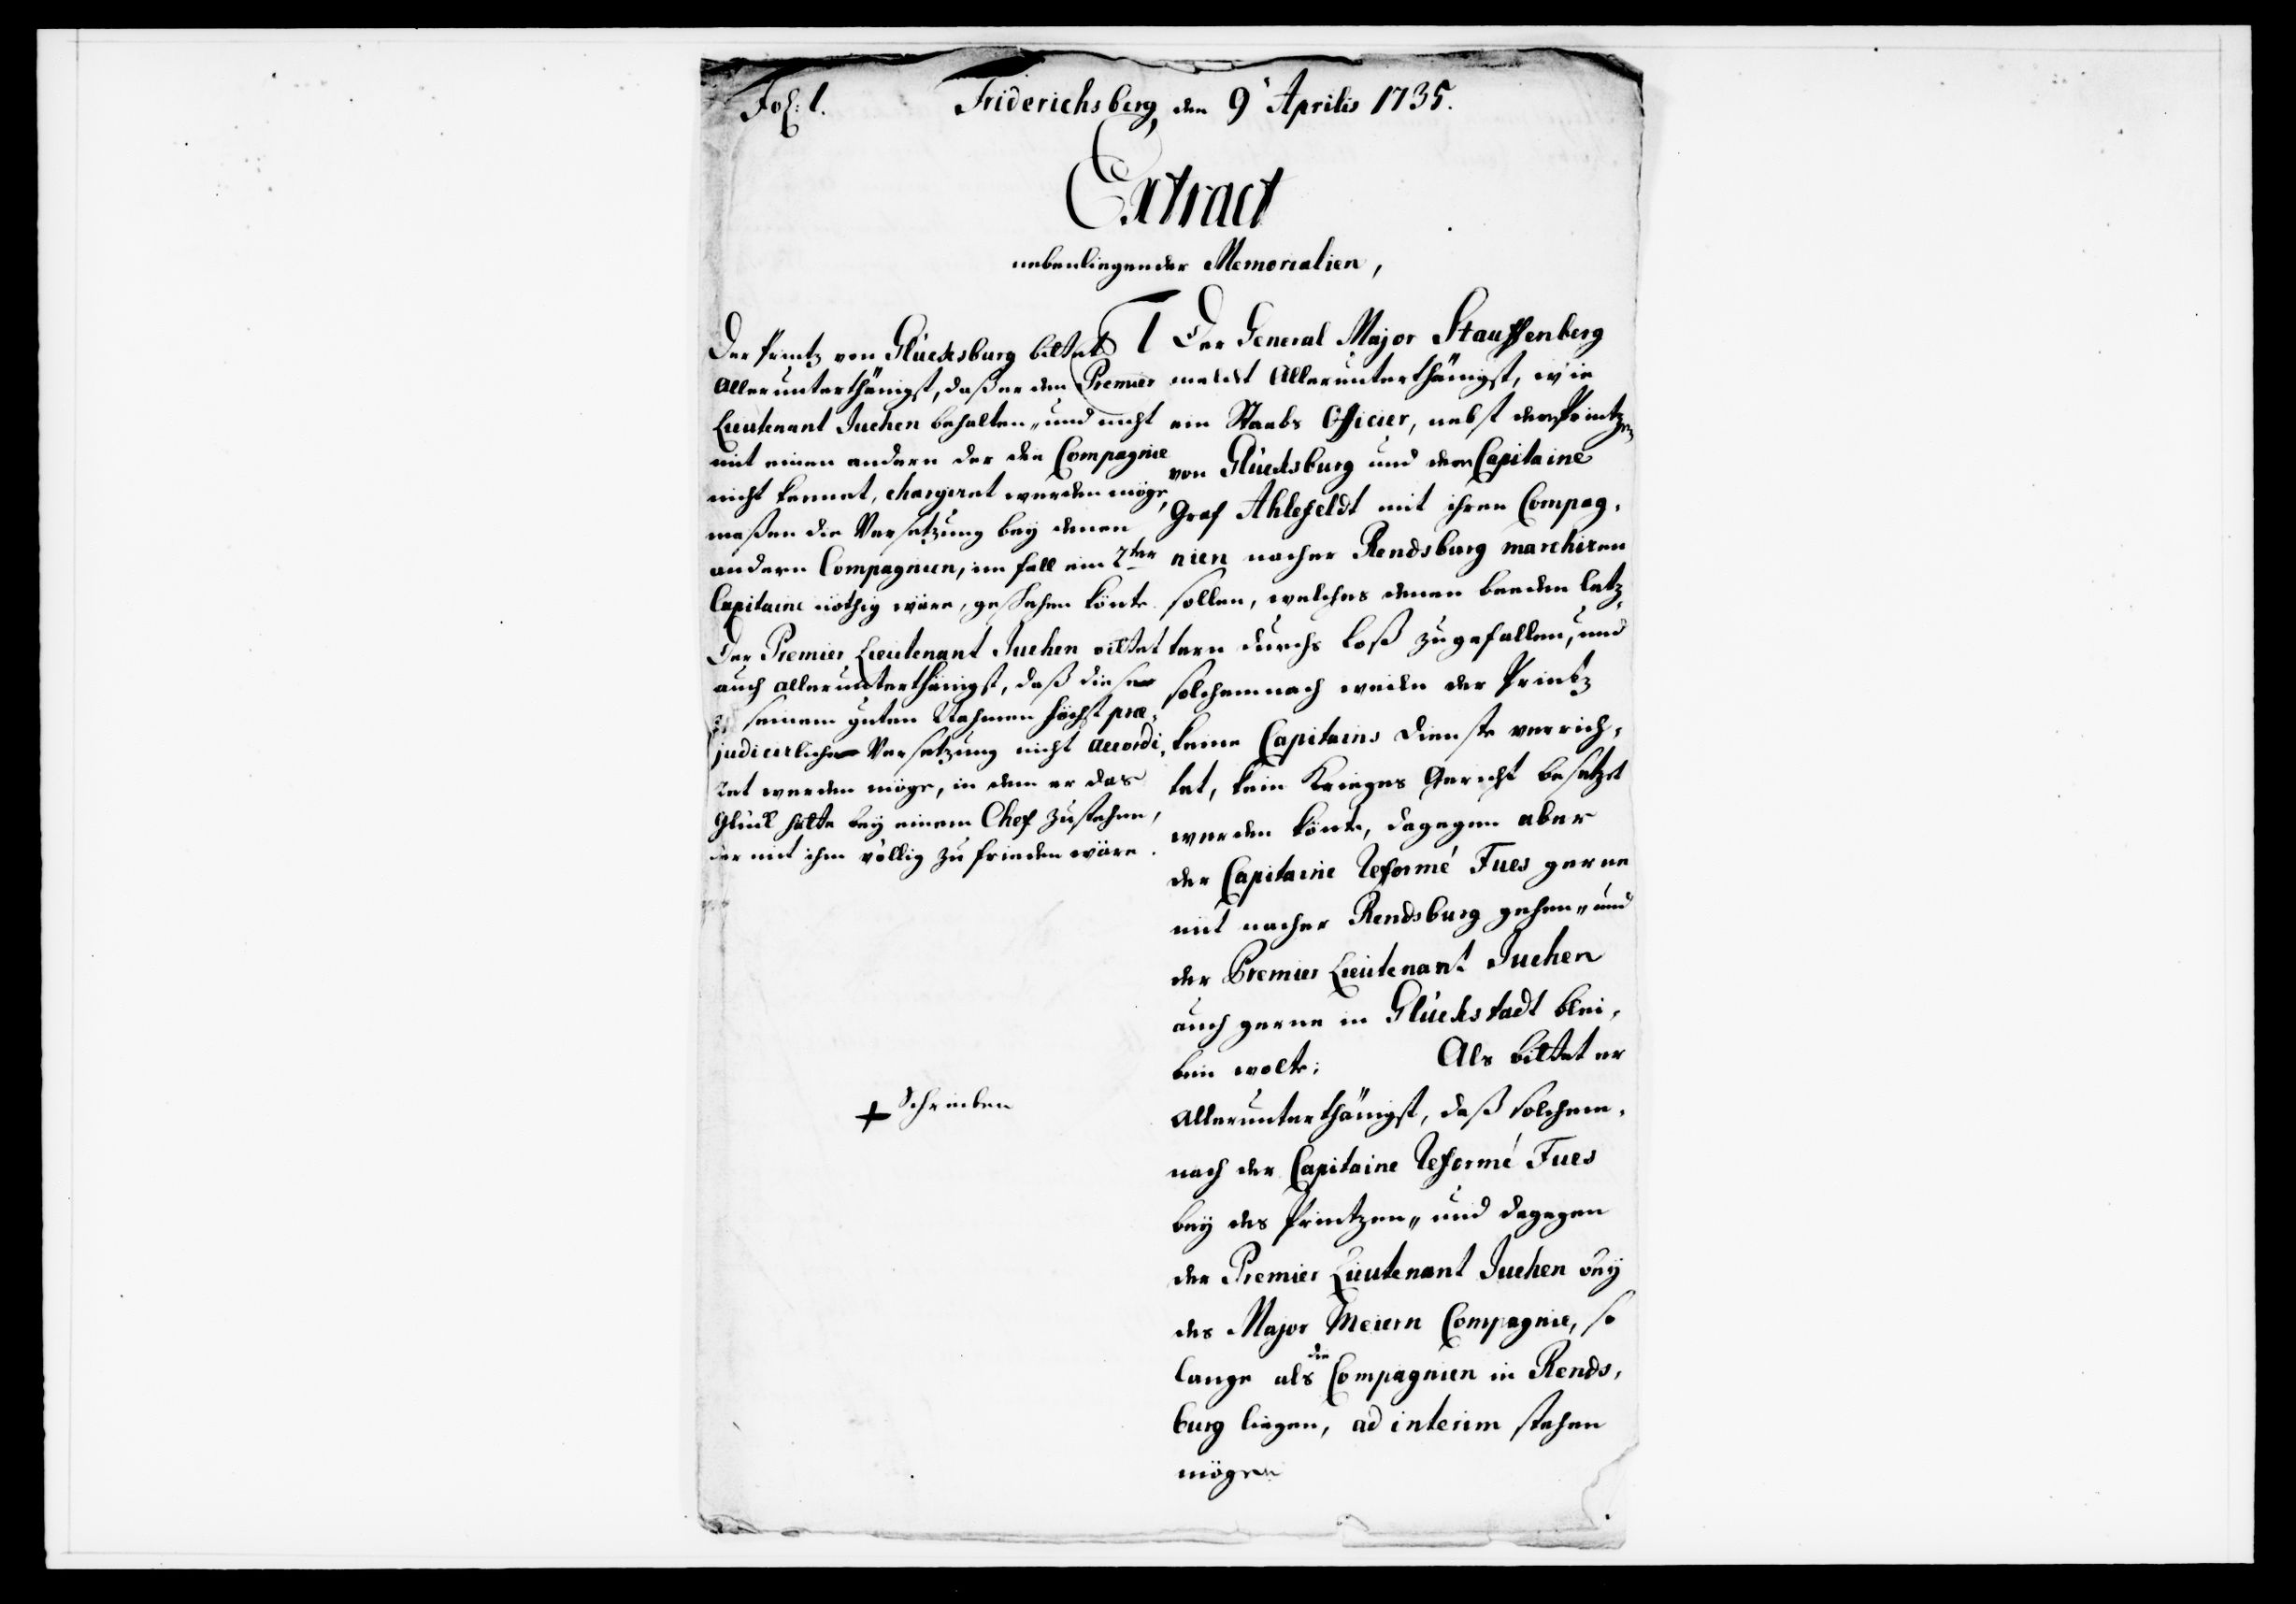 Fol: 1.
Friderichsberg, den 9' Aprilis 1735.
Extract
nebenliegender Memorialien,
Der Printz von Glücksburg bittet
allerunterthänigst, daß er den Premier
Lieutenant Juchen behalten, und nicht
mit einen andern der die Compagnie
nicht kennet, chargiret werden möge,
maßen die Versetzung bey denen
andern Compagnien, im fall ein 2ter
Capitaine nöthig wäre, geschehen könte.
Der Premier Lieutenant Juchen bittet
auch allerunterthänigst, daß diese
seinem guten Nahmen höchst præ-
judicirliche Versetzung nicht accordi-
ret werden möge, in dem er das
Glück hätte bey einem Chef zustehen,
der mit ihm völlig zu frieden wäre.
+ Schreiben
1 Der General Major Stauffenberg
meldet allerunterthänigst, wie
ein Staabs Officier, nebst dem Printzen
von Glücksburg und dem Capitaine
Graf Ahlefeldt mit ihren Compag-
nien nacher Rendsburg marchiren
sollen, welches denen beeden letz-
tern durchs Loß zugefallen, und
solchemnach weilen der Printz
keine Capitains Dienste verrich-
tet, kein Krieges Gericht besetzet
werden könte, dagegen aber
der Capitaine Reformé Fues gerne
mit nacher Rendsburg gehen, und
der Premier Lieutenant Juchen
auch gerne in Glückstadt blei-
ben wolte; Als bittet er
allerunterthänigst, daß solchem-
nach der Capitaine Reformé Fues
bey des Printzen, und dagegen
der Premier Lieutenant Juchen bey
des Major Meiern Compagnie, so
lange als die Compagnien in Rends-
burg liegen, ad interim stehen
mögen